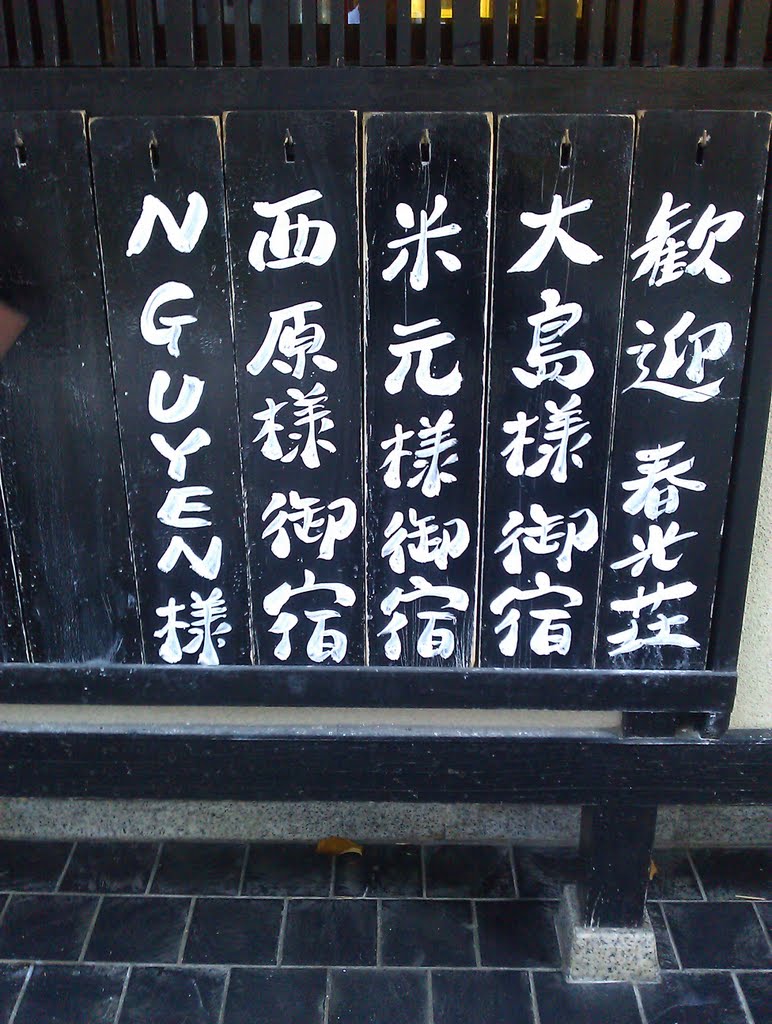 歓迎 春光荘
大島様御宿
米元様御宿
西原様御宿
NGUYEN様